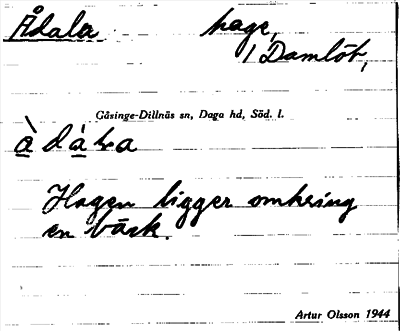 Ådala hage,
i Damlöt,
Gåsinge-Dillnäs sn, Daga hd, Söd. l.
Hagen ligger omkring
en bäck.
Artur Olsson 1944